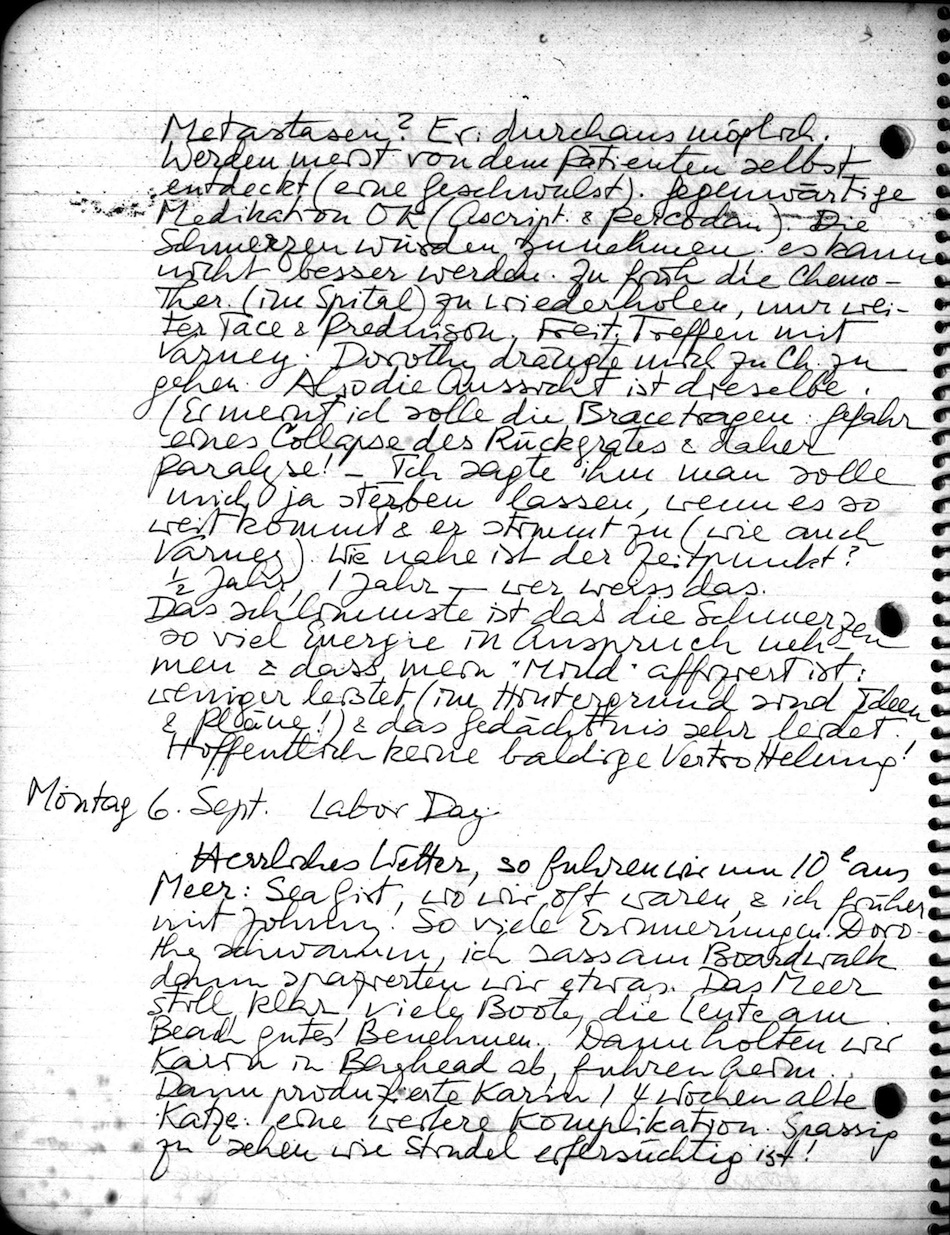 Metastasen? Er: durchaus möglich.
Werden meist von dem Patienten selbst
entdeckt (eine Geschwulst). Gegenwärtige
Medikation OK (Ascript. & Percodan). Die
Schmerzen würden zunehmen. es kann
nicht besser werden. Zu früh die Chemo-
ther. (im Spital) zu wiederholen, nur wei-
ter Tace & Prednison. Freit. Treffen mit
Varney. Dorothy drängte mich zu Ch. zu
gehen. Also die Aussicht ist dieselbe.
(Er meint ich solle die Brace tragen: Gefahr
eines Collapse des Rückgrates & daher
Paralyse! – Ich sagte ihm man solle
mich ja sterben lassen, wenn es so
weit kommt & er stimmt zu (wie auch
Varney). Wie nahe ist der Zeitpunkt?
½ Jahr, 1 Jahr – wer weiss das.
Das schlimmste ist das die Schmerzen
so viel Energie in Anspruch neh-
men & dass mein "Mind" affiziert ist:
weniger leistet (im Hintergrund sind Ideen
& Pläne!) & das Gedächtnis sehr leidet.
Hoffentlich keine baldige Vertrottelung!
Montag 6. Sept. Labor Day.
Herrliches Wetter, so fuhren wir um 10ᵉ ans
Meer: Sea Girt, wo wir oft waren, & ich früher
mit Johnny. So viele Erinnerungen. Doro-
thy schwamm, ich sass am Boardwalk
dann spazierten wir etwas. Das Meer
still, klar, viele Boote, die Leute am
Beach gutes Benehmen. Dann holten wir
Karin in Bayhead ab, fuhren heim.
Dann produzierte Karin 1 4 wochen alte
Katze: eine weitere Komplikation. Spassig
zu sehen wie Strudel eifersüchtig ist!